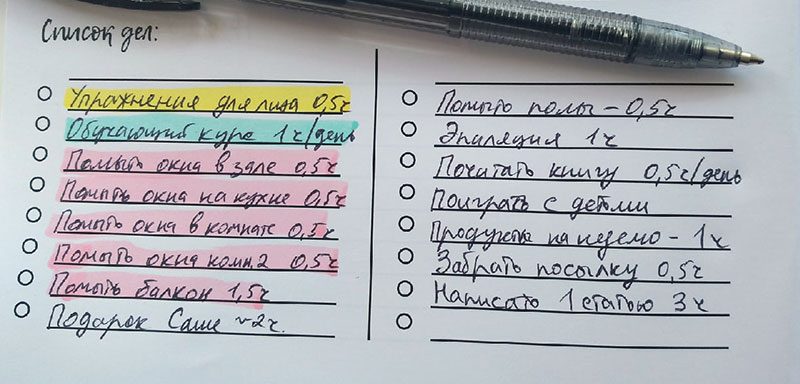 Список дел:
Упражнения для лица 0,5ч
Обучающий курс 1ч/день
Помыть окна в зале 0,5ч
Помыть окна на кухне 0,5ч
Помыть окна в комнате 0,5ч
Помыть окна комн.2 0,5ч
Помыть балкон 1,5ч
Подарок Саше ~2ч.
Помыть полы – 0,5ч
Эпиляция 1ч
Почитать книгу 0,5ч/день
Поиграть с детьми
Продукты на неделю – 1ч
Забрать посылку 0,5ч
Написать 1 статью 3ч